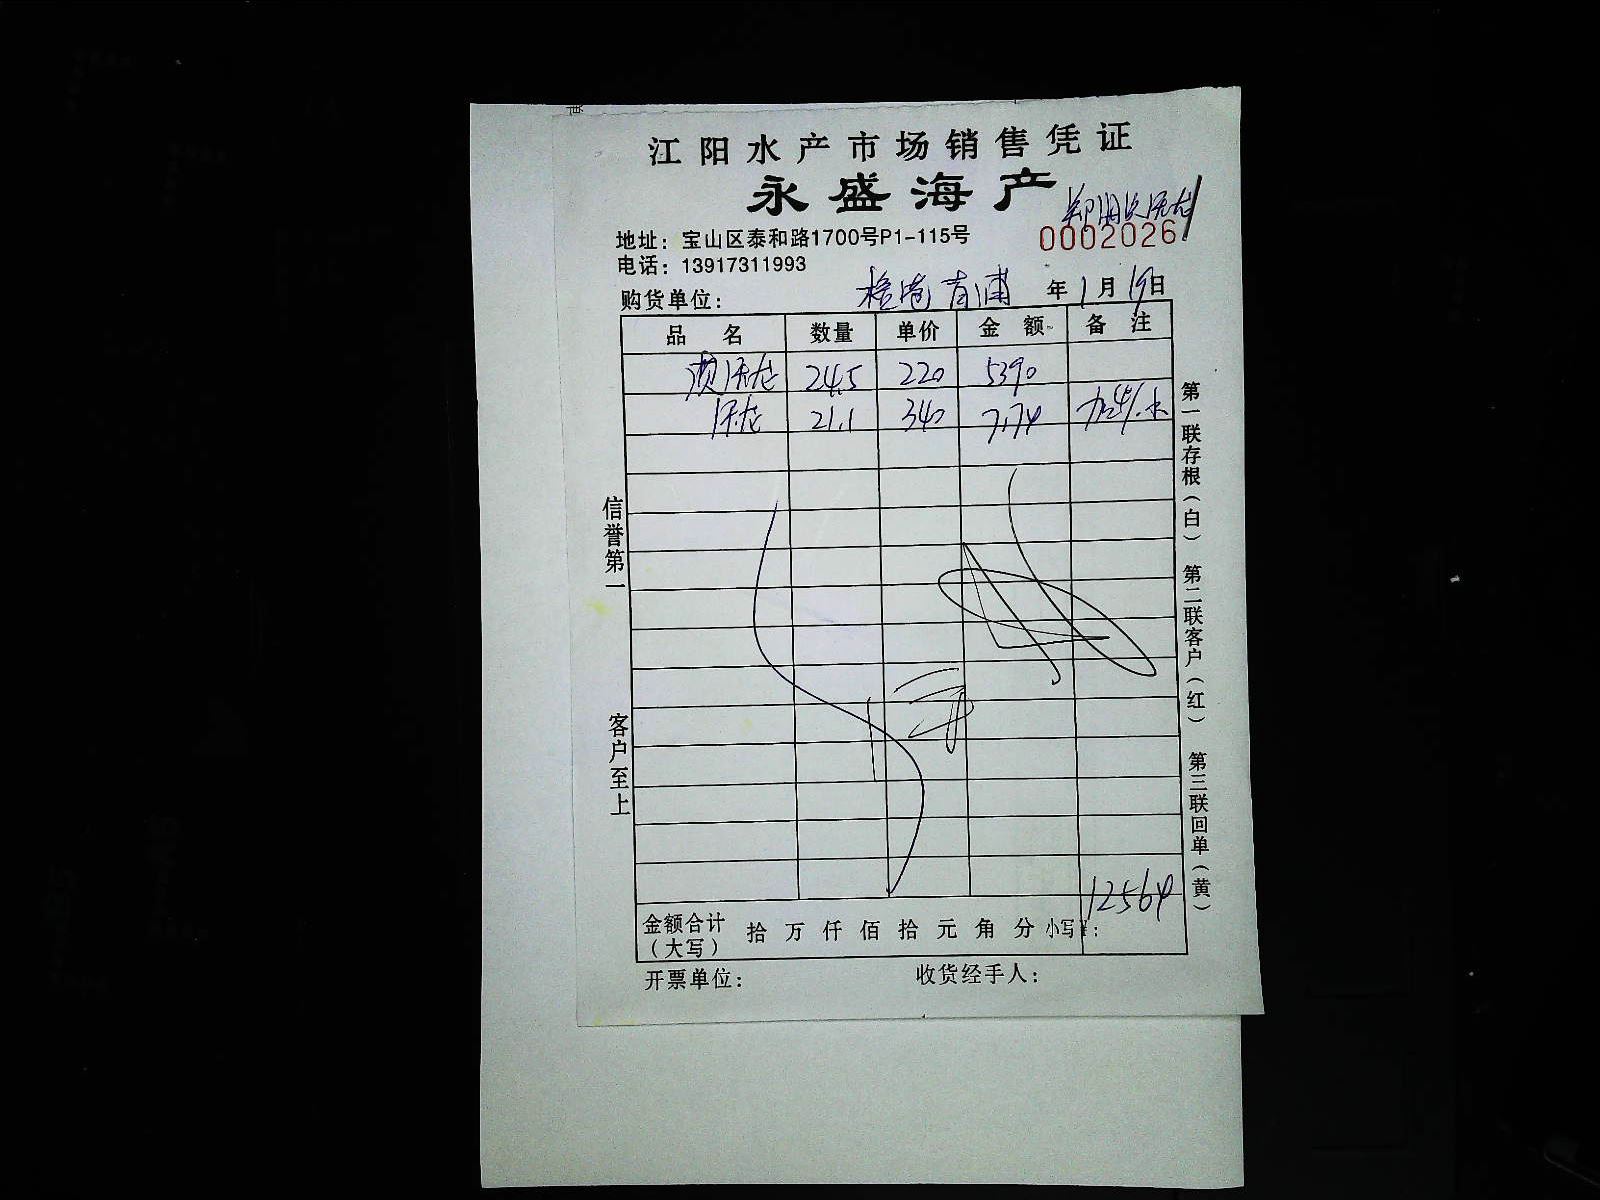 江阳水产市场销售凭证
永盛海产
地址：宝山区泰和路1700号P1-115号
0002026
电话：13917311993
购货单位： 青浦 年1月19日
品名 数量 单价 金额 备注
澳洲龙 24.5 220 5390
21.1 340 7174 加4%水
信誉第一
客户至上
第一联存根（白） 第二联客户（红） 第三联回单（黄）
12564
金额合计（大写） 拾万仟佰拾元角分 小写￥：
开票单位： 收货经手人：